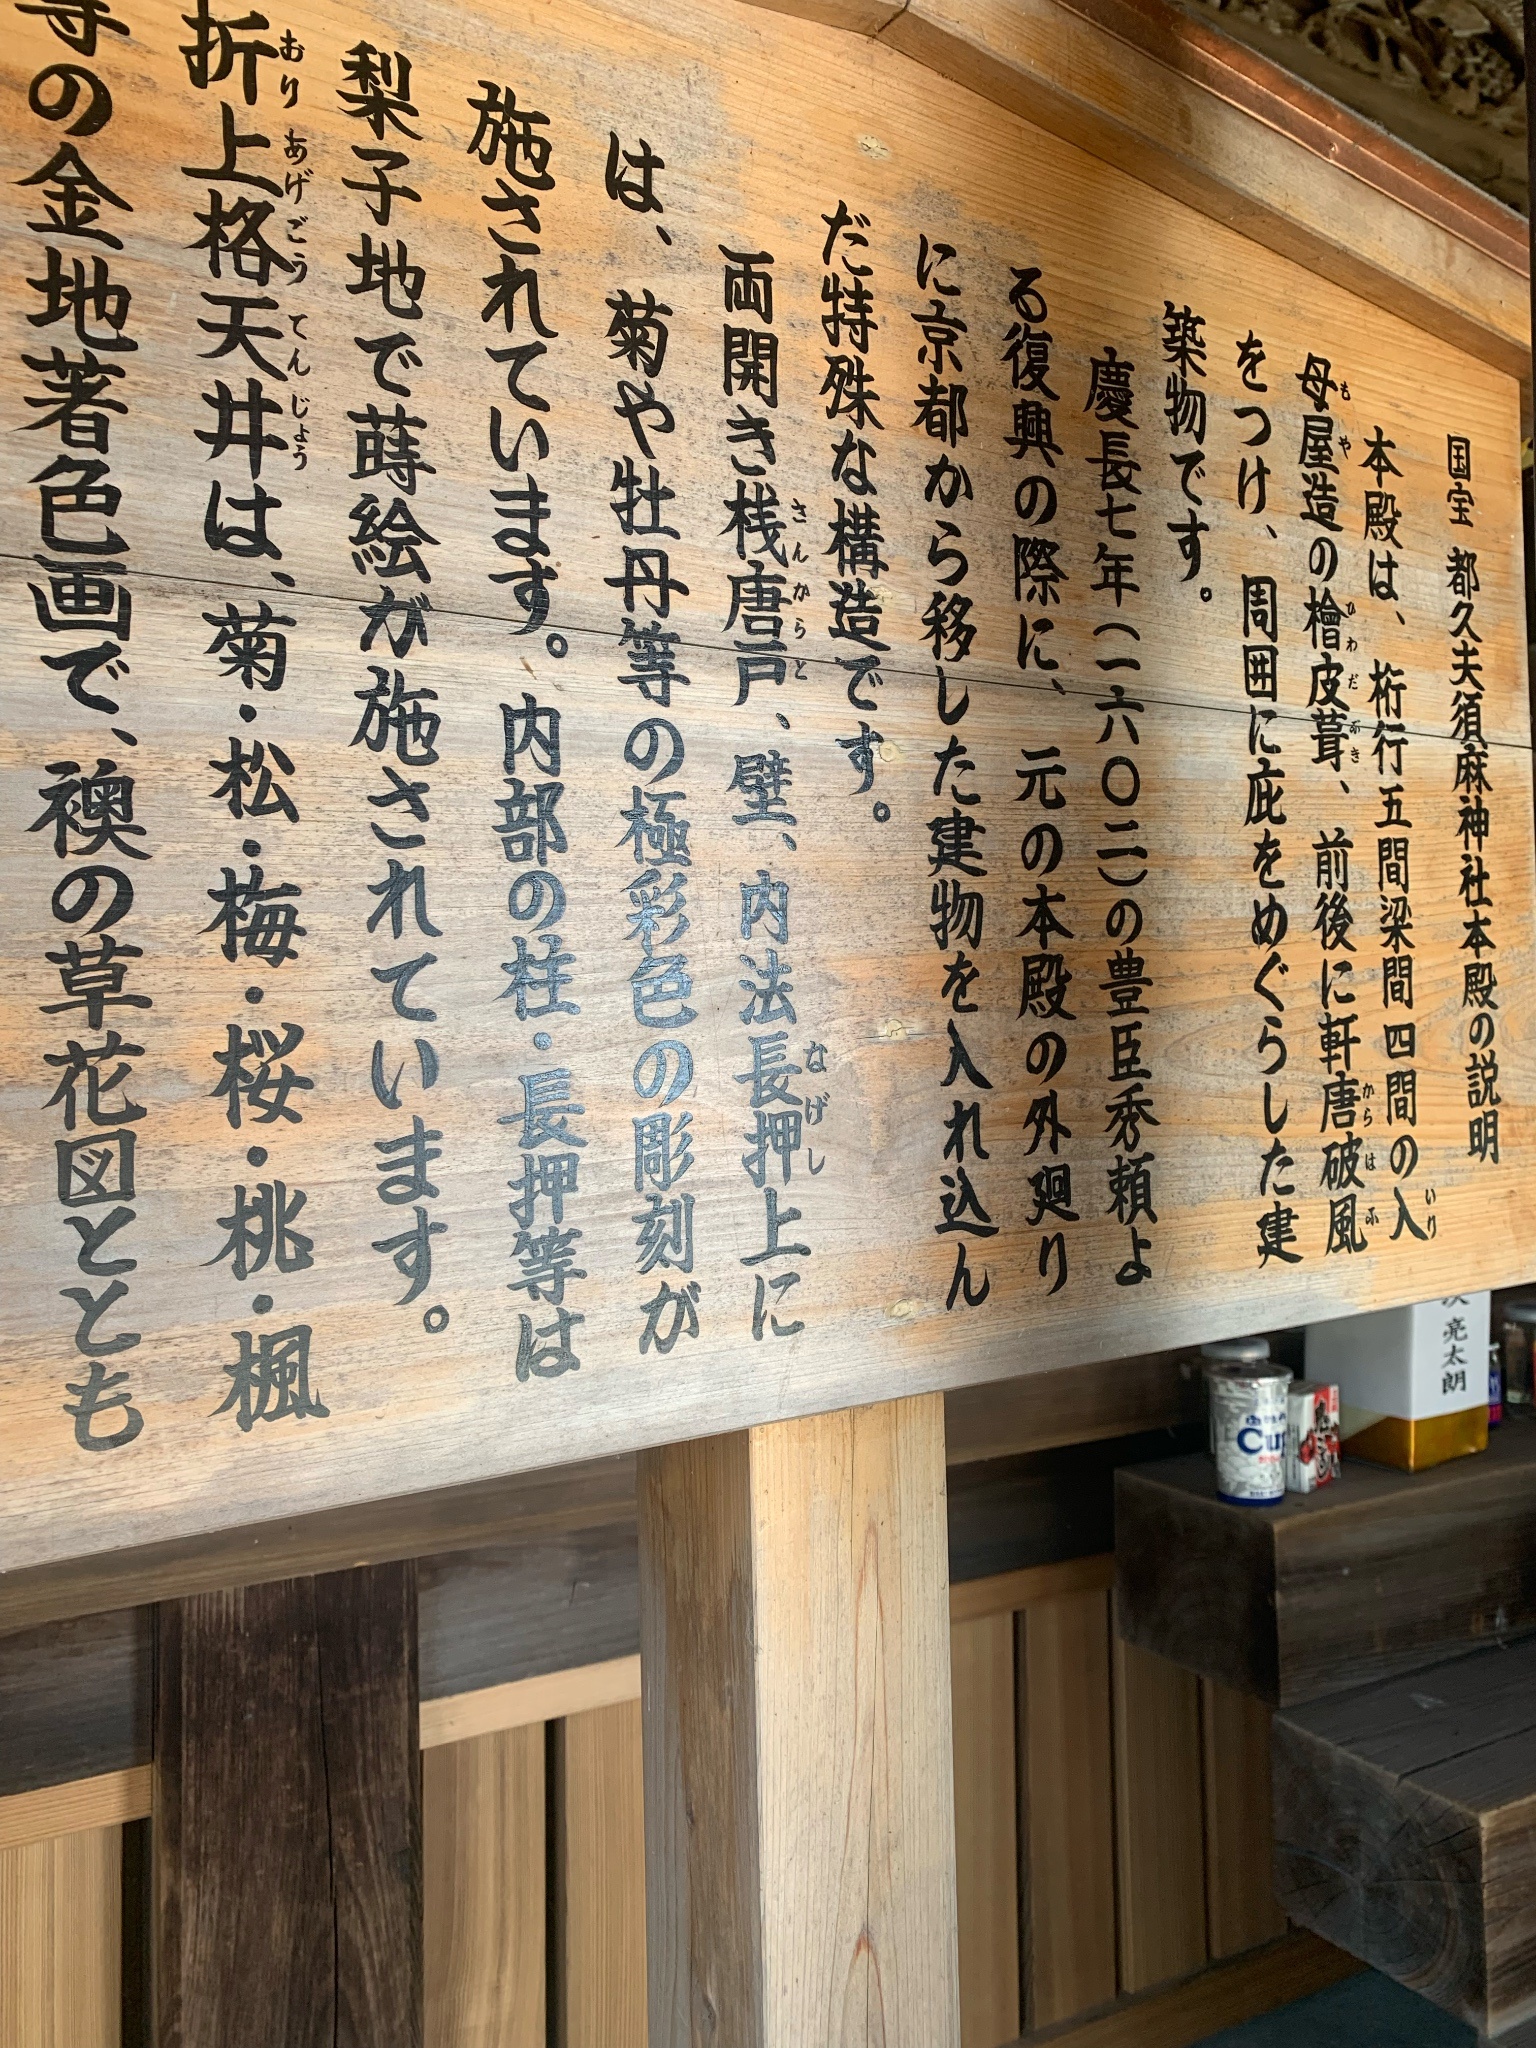 国宝 都久夫須麻神社本殿の説明
本殿は、桁行五間梁間四間の入
いり
母屋造の檜皮葺、前後に軒唐破風
もや ひわだぶき からはふ
をつけ、周囲に庇をめぐらした建
築物です。
慶長七年(一六〇二)の豊臣秀頼よ
る復興の際に、元の本殿の外廻り
に京都から移した建物を入れ込ん
だ特殊な構造です。
両開き桟唐戸、壁、内法長押上に
さんからと なげし
は、菊や牡丹等の極彩色の彫刻が
施されています。内部の柱・長押等は
梨子地で蒔絵が施されています。
折上格天井は、菊・松・梅・桜・桃・楓
おりあげごうてんじょう
等の金地著色画で、襖の草花図ととも
亮太朗
Cup